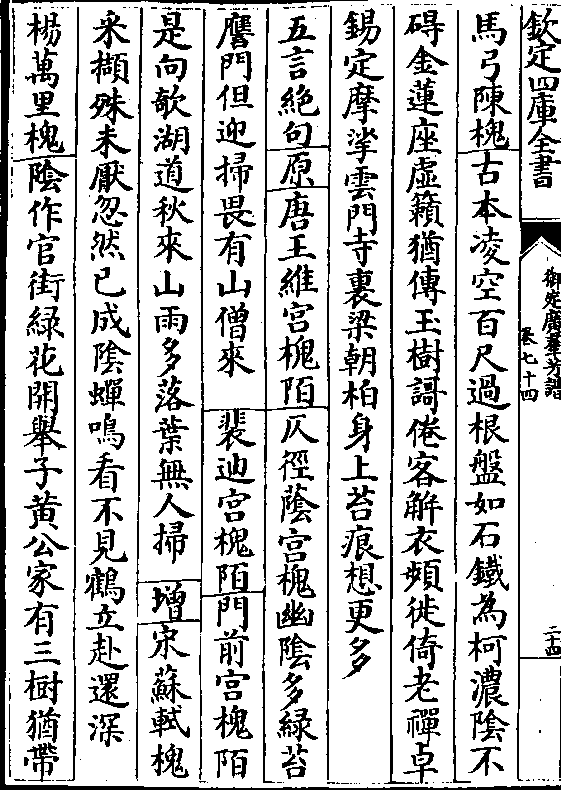 欽定四庫全書
御定廣羣芳譜
卷七十四
二十四
馬弓陳槐古本凌空百尺過根盤如石鐵為柯濃陰不
碍金蓮座虛籟猶傳玉樹謌倦客解衣頻徙倚老禪卓
錫定摩挲雲門寺裏梁朝柏身上苔痕想更多
五言絶句原唐王維宫槐陌仄徑蔭宫槐幽陰多緑苔
應門但迎掃畏有山僧來 裴迪宫槐陌門前宫槐陌
是向欹湖道秋來山雨多落葉無人掃 増宋蘇軾槐
采擷殊未厭忽然已成陰蟬鳴看不見鶴立赴還深
楊萬里槐陰作官街緑花開舉子黄公家有三樹猶帶